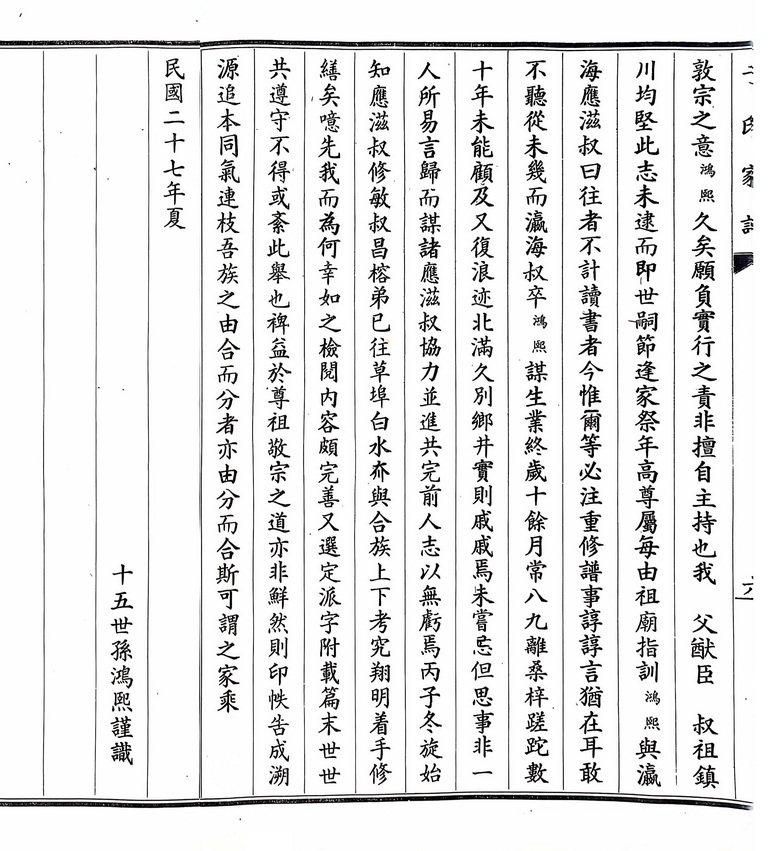 氏家譜
六
敦宗之意鴻熙久矣願負實行之責非擅自主持也我 父猷臣 叔祖鎮
川均堅此志未逮而即世嗣節逢家祭年高尊屬每由祖廟指訓鴻熙與瀛
海應滋叔曰往者不計讀書者今惟爾等必注重修譜事諄諄言猶在耳敢
不聽從未幾而瀛海叔卒鴻熙謀生業終歲十餘月常八九離桑梓蹉跎數
十年未能顧及又復浪迹北滿久別鄉井實則戚戚焉朱嘗忘但思事非一
人所易言歸而謀諸應滋叔協力並進共完前人志以無虧焉丙子冬旋始
知應滋叔修敏叔昌榕弟已往草埠白水夼與合族上下考究翔明着手修
繕矣噫先我而為何幸如之檢閱內容頗完善又選定派字附載篇末世世
共遵守不得或紊此舉也裨益於尊祖敬宗之道亦非鮮然則印帙告成溯
源追本同氣連枝吾族之由合而分者亦由分而合斯可謂之家乘
民國二十七年夏
十五世孫鴻熙謹識